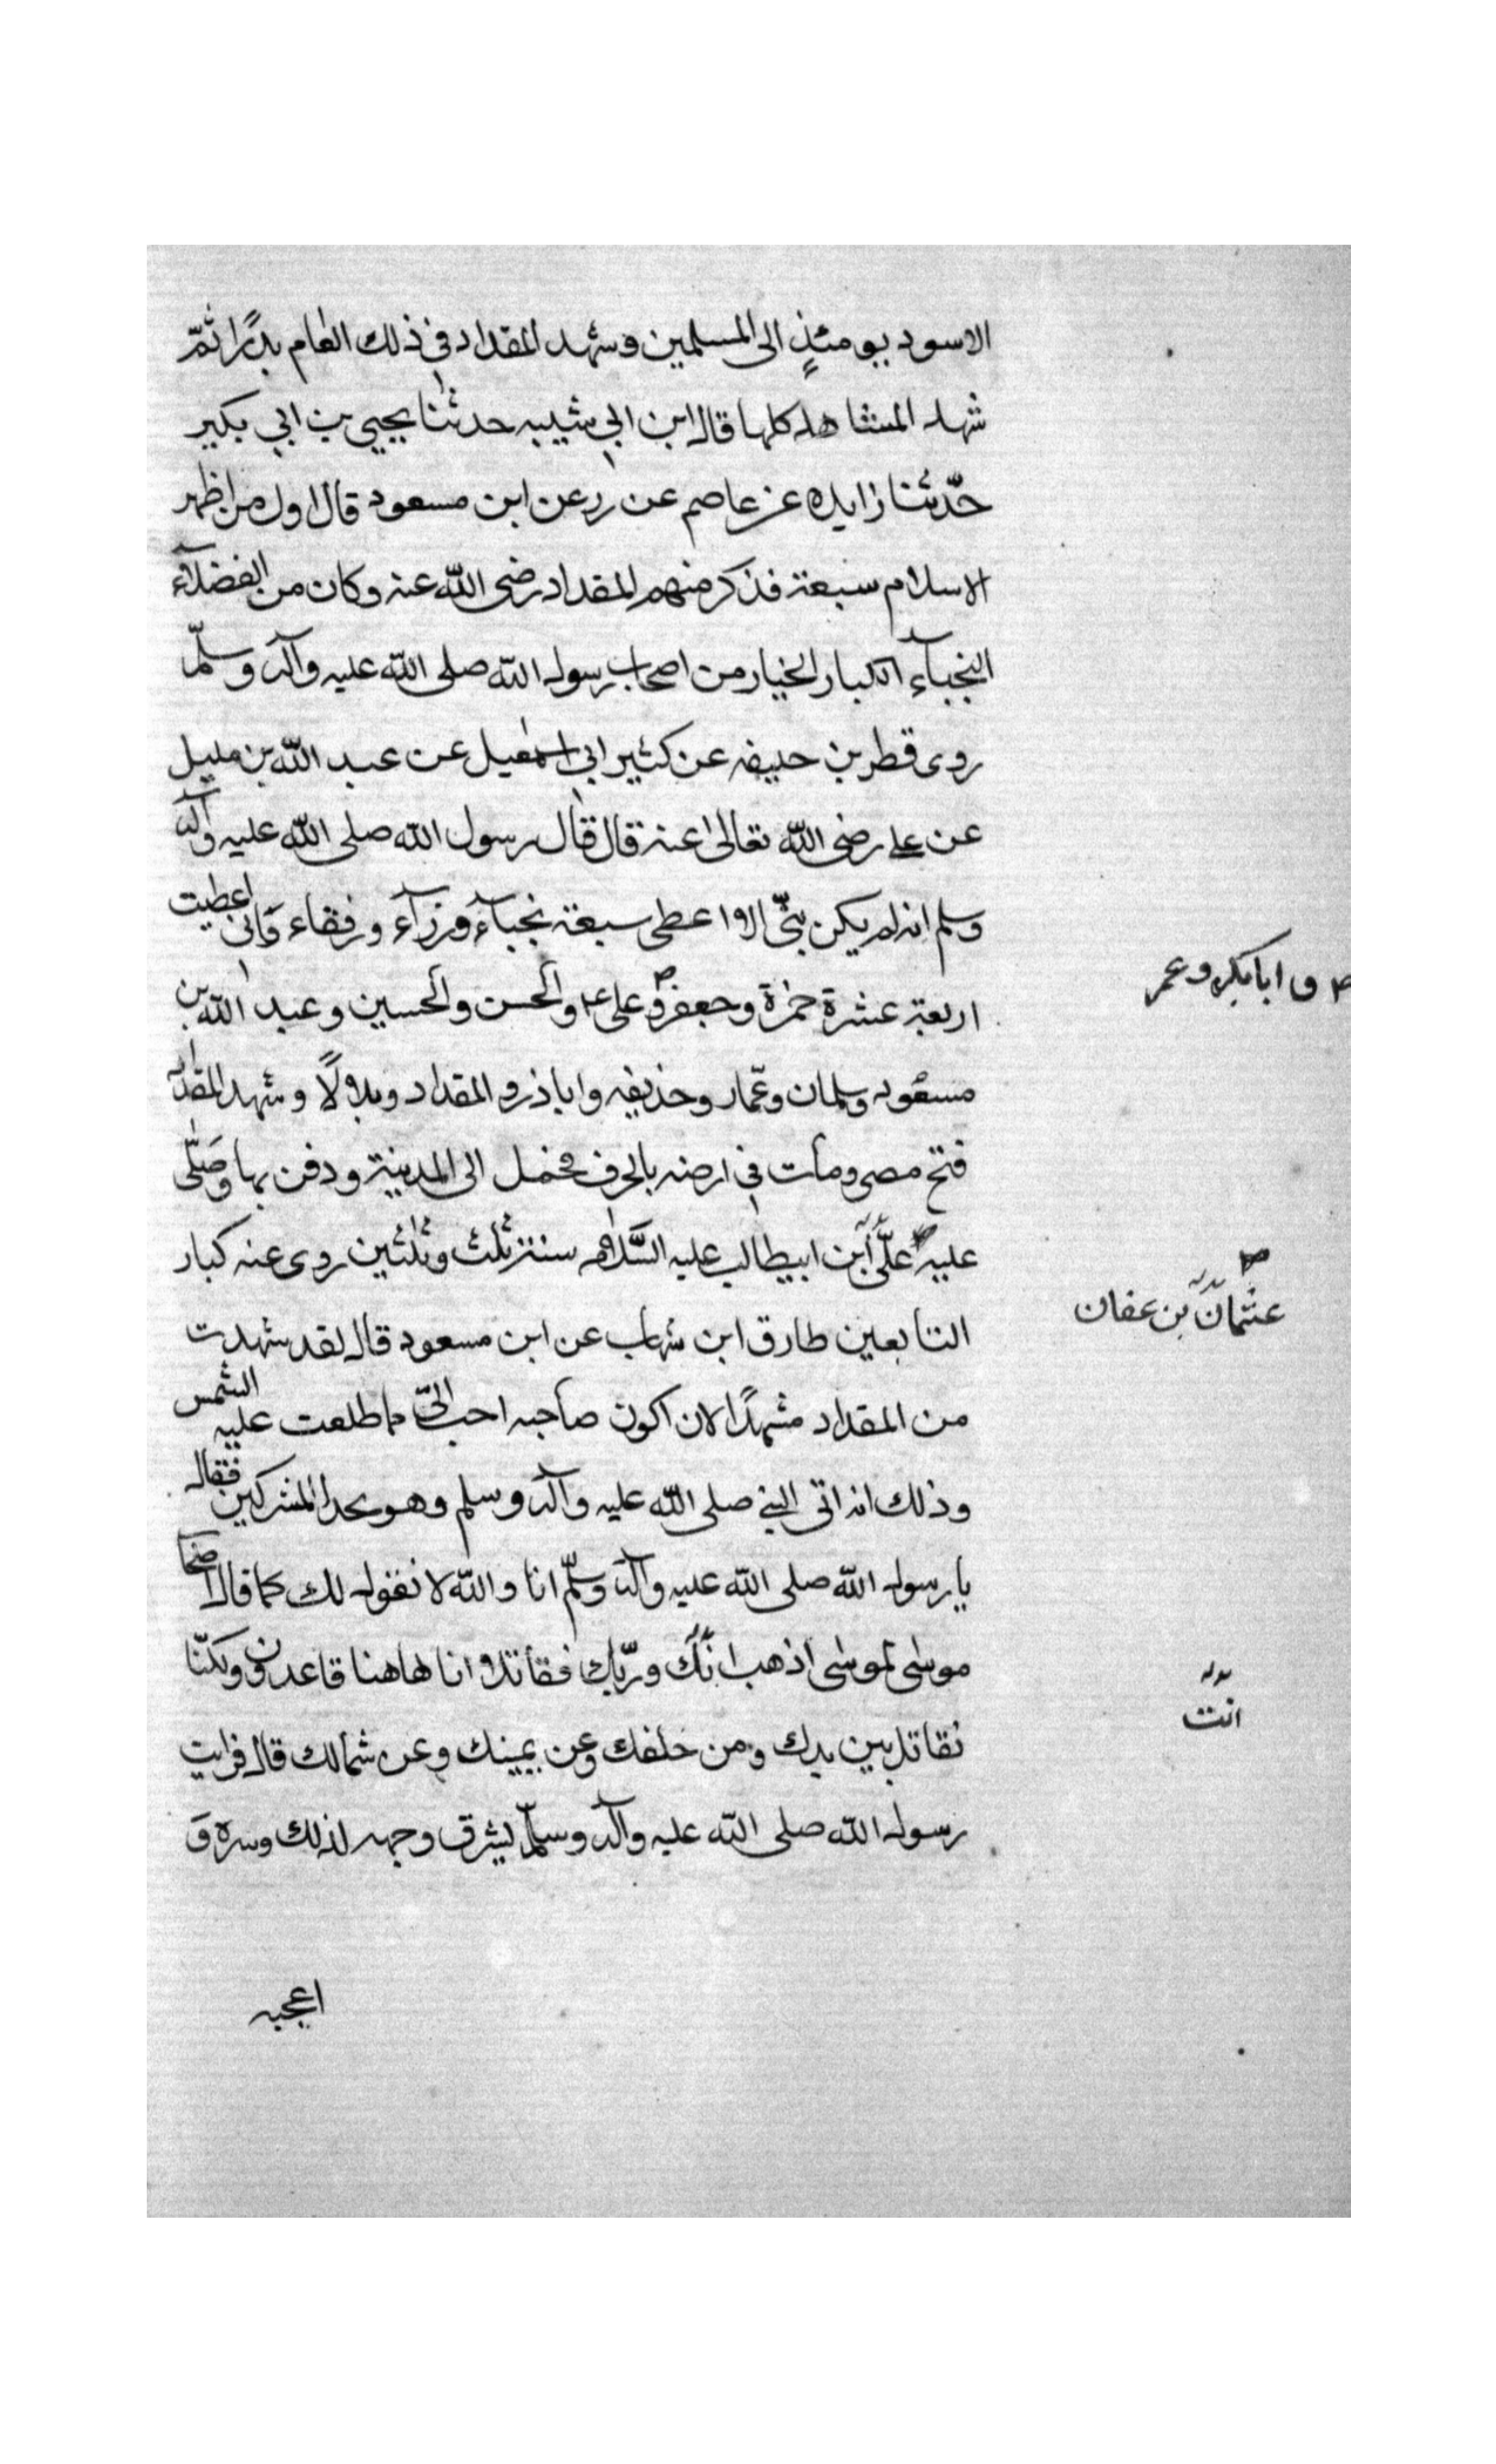 الاسود يومئذٍ الى المسلمين وشهد المقداد في ذلك العام بدرًا ثمّ
شهد المشاهد كلها قال ابن ابي شيبه حدثنا يحيى بن ابي بكير
حدّثنا زايده عن عاصم عن زر عن ابن مسعود قال اول من اظهر
الاسلام سبعة فذكر منهم المقداد رضى الله عنه وكان من الفضلآء
النجبآء الكبار الخيار من اصحاب رسول الله صلى الله عليه وآله وسلّم
روى قطر بن حليفه عن كثير ابي اسمعيل عن عبد الله بن مليل
عن علي رضى الله تعالى عنه قال قال رسول الله صلى الله عليه وآله
وسلم انه لم يكن نبيّ الا اعطى سبعة نجبآء وزرآء ورفقاء وَاني اعطيت
اربعة عشرة حمزة وجعفر وعلى والحسن والحسين وعبد الله بن
مسعود وسلمان وعمّار وحذيفه واباذر و المقداد وبلالًا وشهد المقداد
فتح مصر ومات في ارضه بالجرف فحمل الى المدينة ودفن بها وَصَلّى
عليه علّى ابن ابيطالب عليه السَّلام سنة ثلث وثلثين روى عنه كبار
التابعين طارق ابن شهاب عن ابن مسعود قال لقد شهدت
من المقداد مشهدًا لان اكون صاحبه احب الىّ مما طلعت عليه الشمس
وذلك انه اتى النبي صلى الله عليه وآله وسلم وهو يحد المشركين فقال
يا رسول الله صلى الله عليه وآله وسلّم انا والله لا نقول لك كما قال اصحاب
موسى لموسى اذهب انّك وربّك فقاتلا انا هاهنا قاعدون ولكنّا
نقاتل بين يدك ومن خلفك وعن يمينك وعن شمالك قال فرايت
رسول الله صلى الله عليه وآله وسلّم يشرق وجهه لذلك وسره وَ
اعجبه
و ابابكر وعمر
عثمان بن عفان
انت